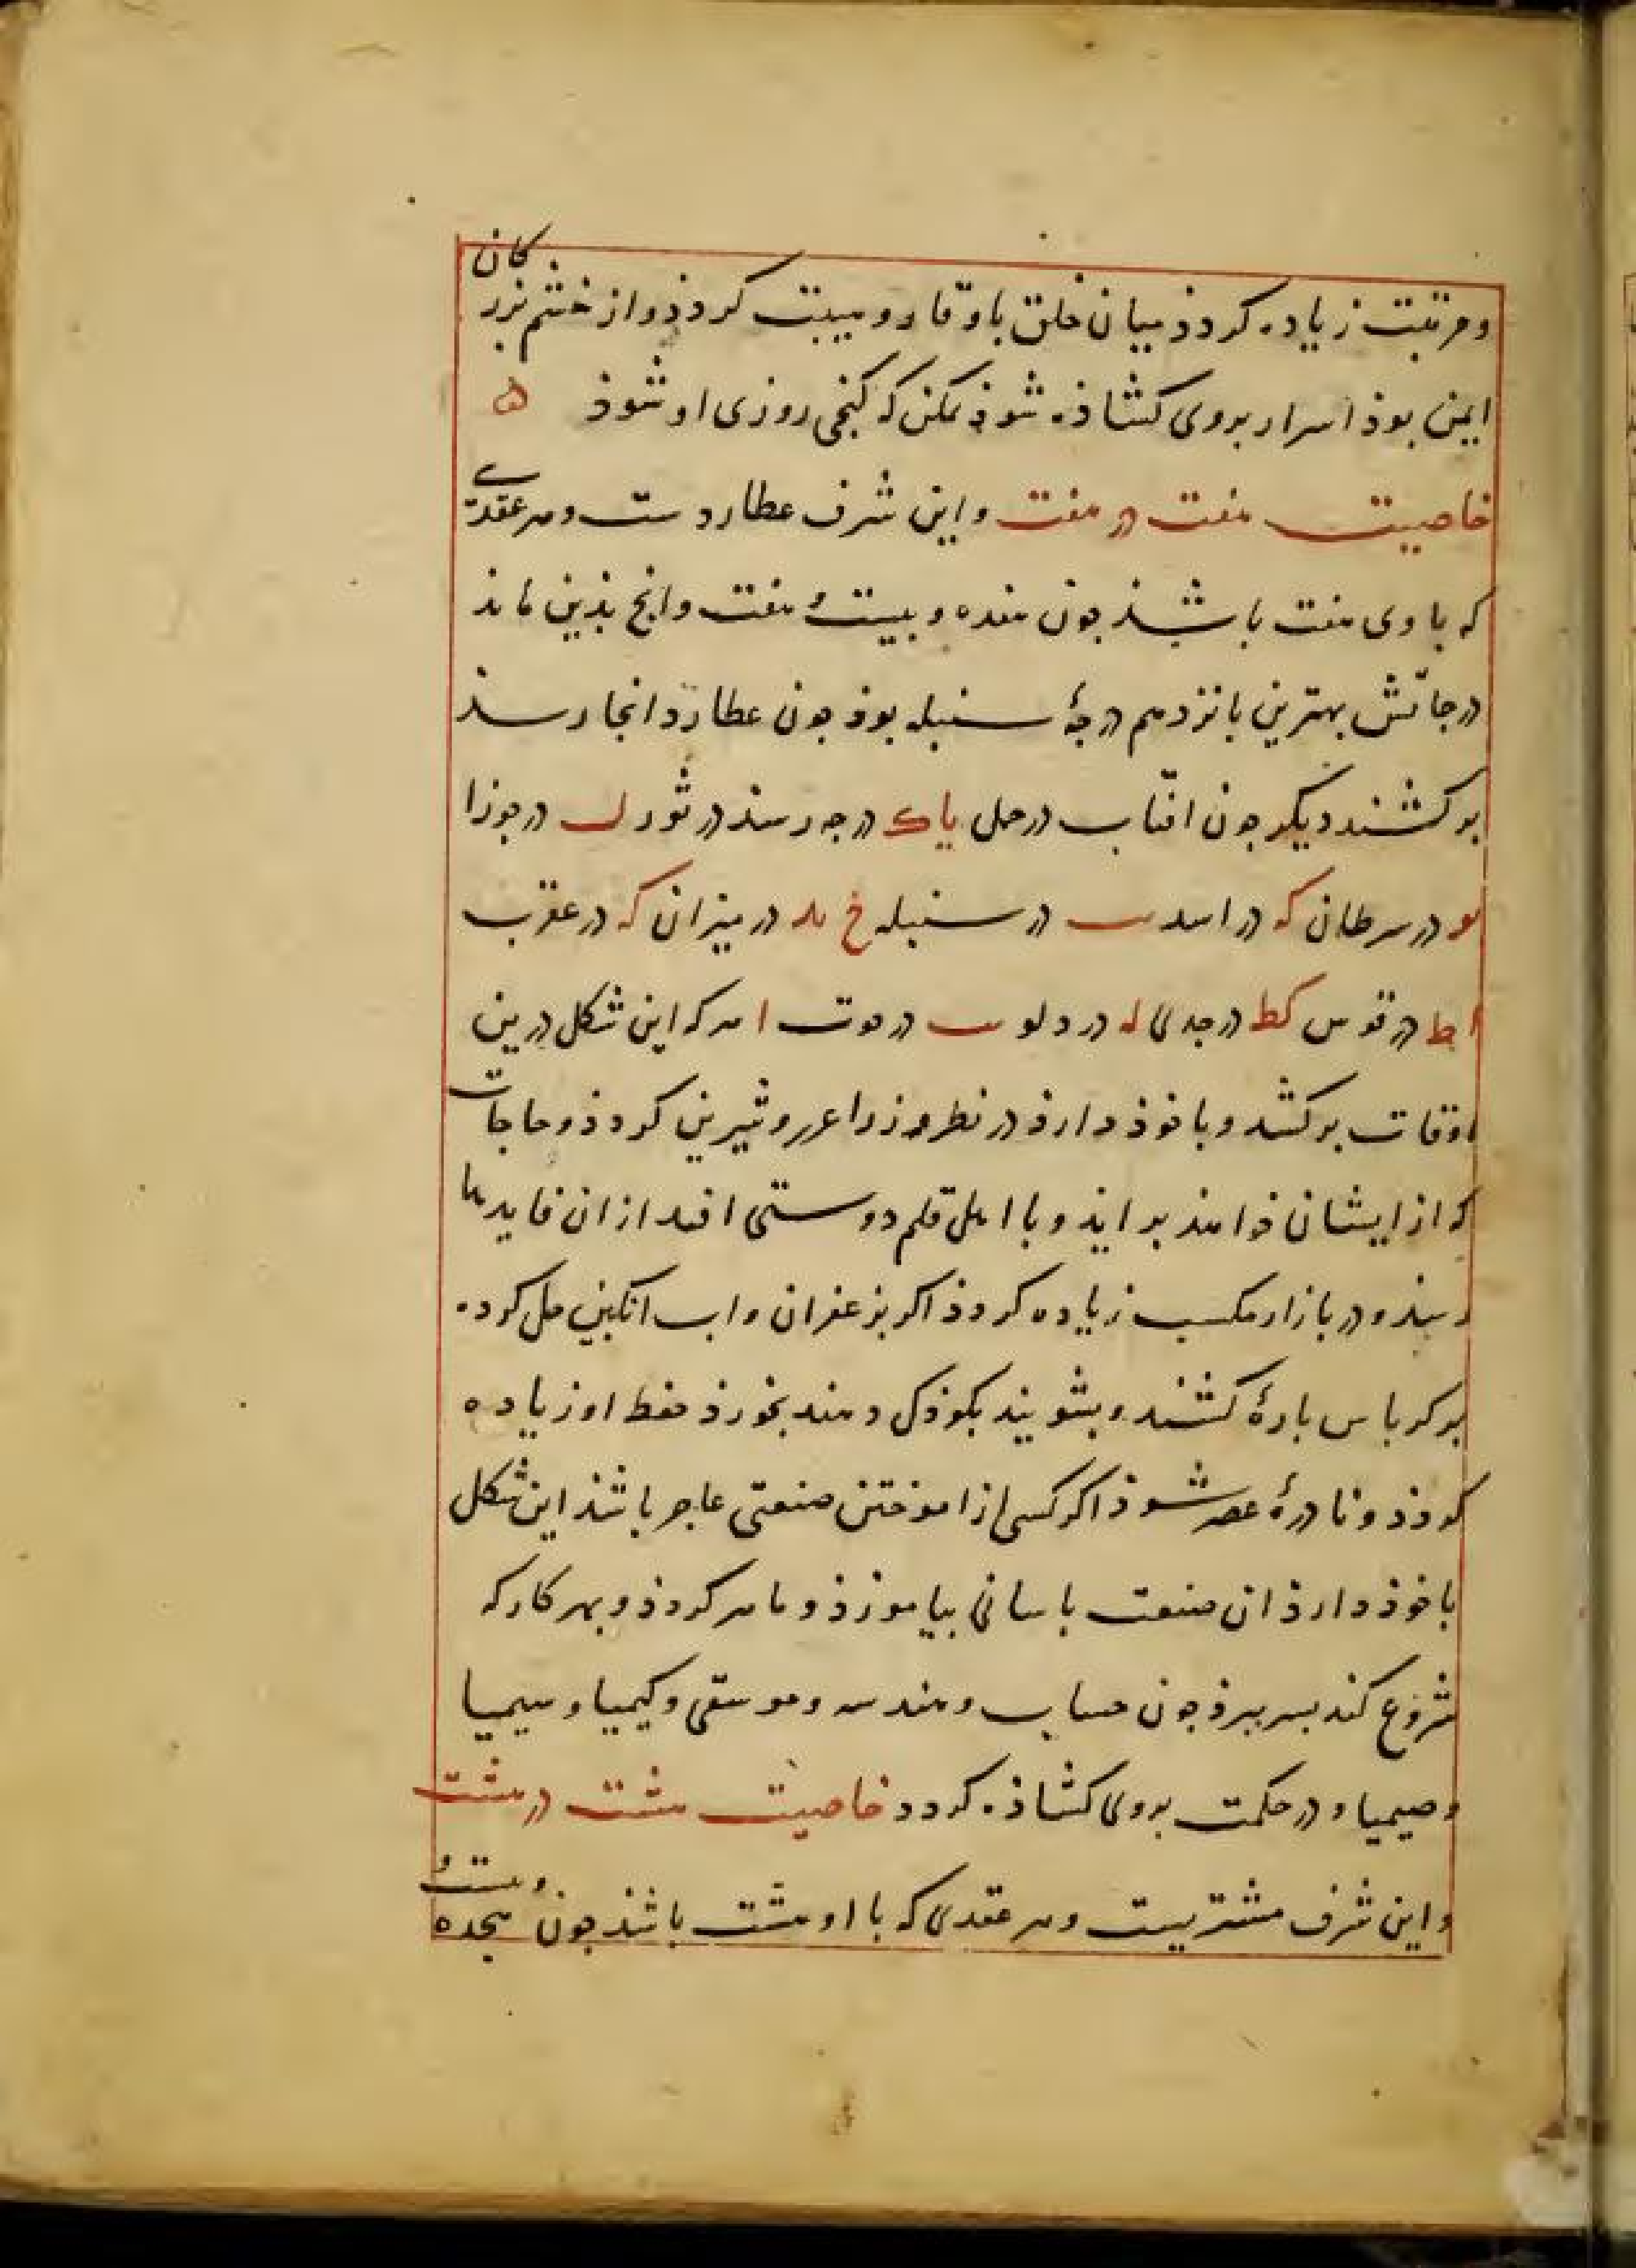 ومرتبت زیاده کردذ میان خلق با وقار و هیبت کردذ و از خشم بزرکان
ایمن بوذ اسرار بروی کشاذه شوذ ممکن که کنجی روزی او شوذ ه
خاصیت هفت در هفت و این شرف عطاردست و هر عقدی
که با وی هفت باشذ جون هفده و بیست و هفت و انج بذین ماند
درجاتش بهترین بانزدهم درجهٔ سنبله بوذ جون عطارد انجا رسذ
برکشند دیکر جون افتاب در حمل یا ک درجه رسذ در ثور ل در جوزا
در سرطان که در اسد در سنبله در میزان که در عقرب
ا ط در قوس کط در جدی له در دلو در حوت ا هر که این شکل درین
اوقات برکشد و با خوذ دارذ در نظر وزرا عزیز و شیرین کردذ و حاجات
که از ایشان خواهند بر ایذ و با اهل قلم دوستی افتد از ان فایدها
رسذ و در بازار مکسب زیاده کردذ اکر بزعفران و اب انکبین حل کرده
بر کرباس بارهٔ کشند و بشویند بکوذکی دهند بخورذ حفظ او زیاده
کردذ و نادرهٔ عصر شوذ اکر کسی از اموختن صنعتی عاجز باشذ این شکل
با خوذ دارذ ان صنعت باسانی بیاموزذ و ماهر کردذ و بهر کار که
شروع کند بسر برذ جون حساب و هندسه و موسقی و کیمیا و سیمیا
و صیمیا و در حکمت بروی کشاذه کردد خاصیت هشت در هشت
و این شرف مشتریست و هر عقدی که با او هشت باشذ جون هجده و بیست و